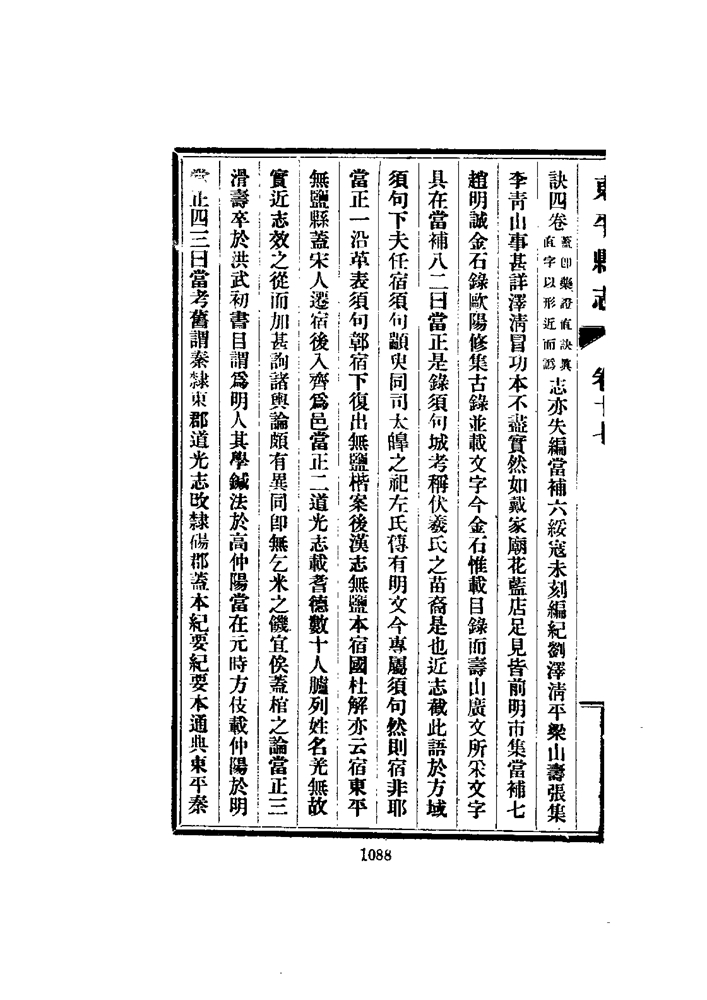 東平縣志 卷十七
訣四卷蓋卽藥證直訣眞直字以形近而譌志亦失編當補六綏寇未刻編紀劉澤淸平梁山壽張集
李青山事甚詳澤淸冒功本不盡實然如戴家廟花藍店足見皆前明市集當補七
趙明誠金石錄歐陽修集古錄並載文字今金石惟載目錄而壽山廣文所采文字
具在當補八二曰當正是錄須句城考稱伏羲氏之苗裔是也近志截此語於方域
須句下夫任宿須句顓臾同司太皞之祀左氏傳有明文今專屬須句然則宿非耶
當正一沿革表須句鄣宿下復出無鹽楷案後漢志無鹽本宿國杜解亦云宿東平
無鹽縣蓋宋人遷宿後入齊爲邑當正二道光志載耆德數十人臚列姓名羌無故
實近志效之從而加甚詢諸輿論頗有異同卽無乞米之饑宜俟蓋棺之論當正三
滑壽卒於洪武初書目謂爲明人其學鍼法於高仲陽當在元時方伎載仲陽於明
當正四三曰當考舊謂秦隸東郡道光志改隸碭郡蓋本紀要紀要本通典東平秦
1088